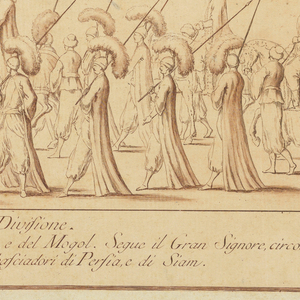 Divisione.
e del Mogol. Segue il Gran Signore, circo
asciadori di Persia, e di Siam.